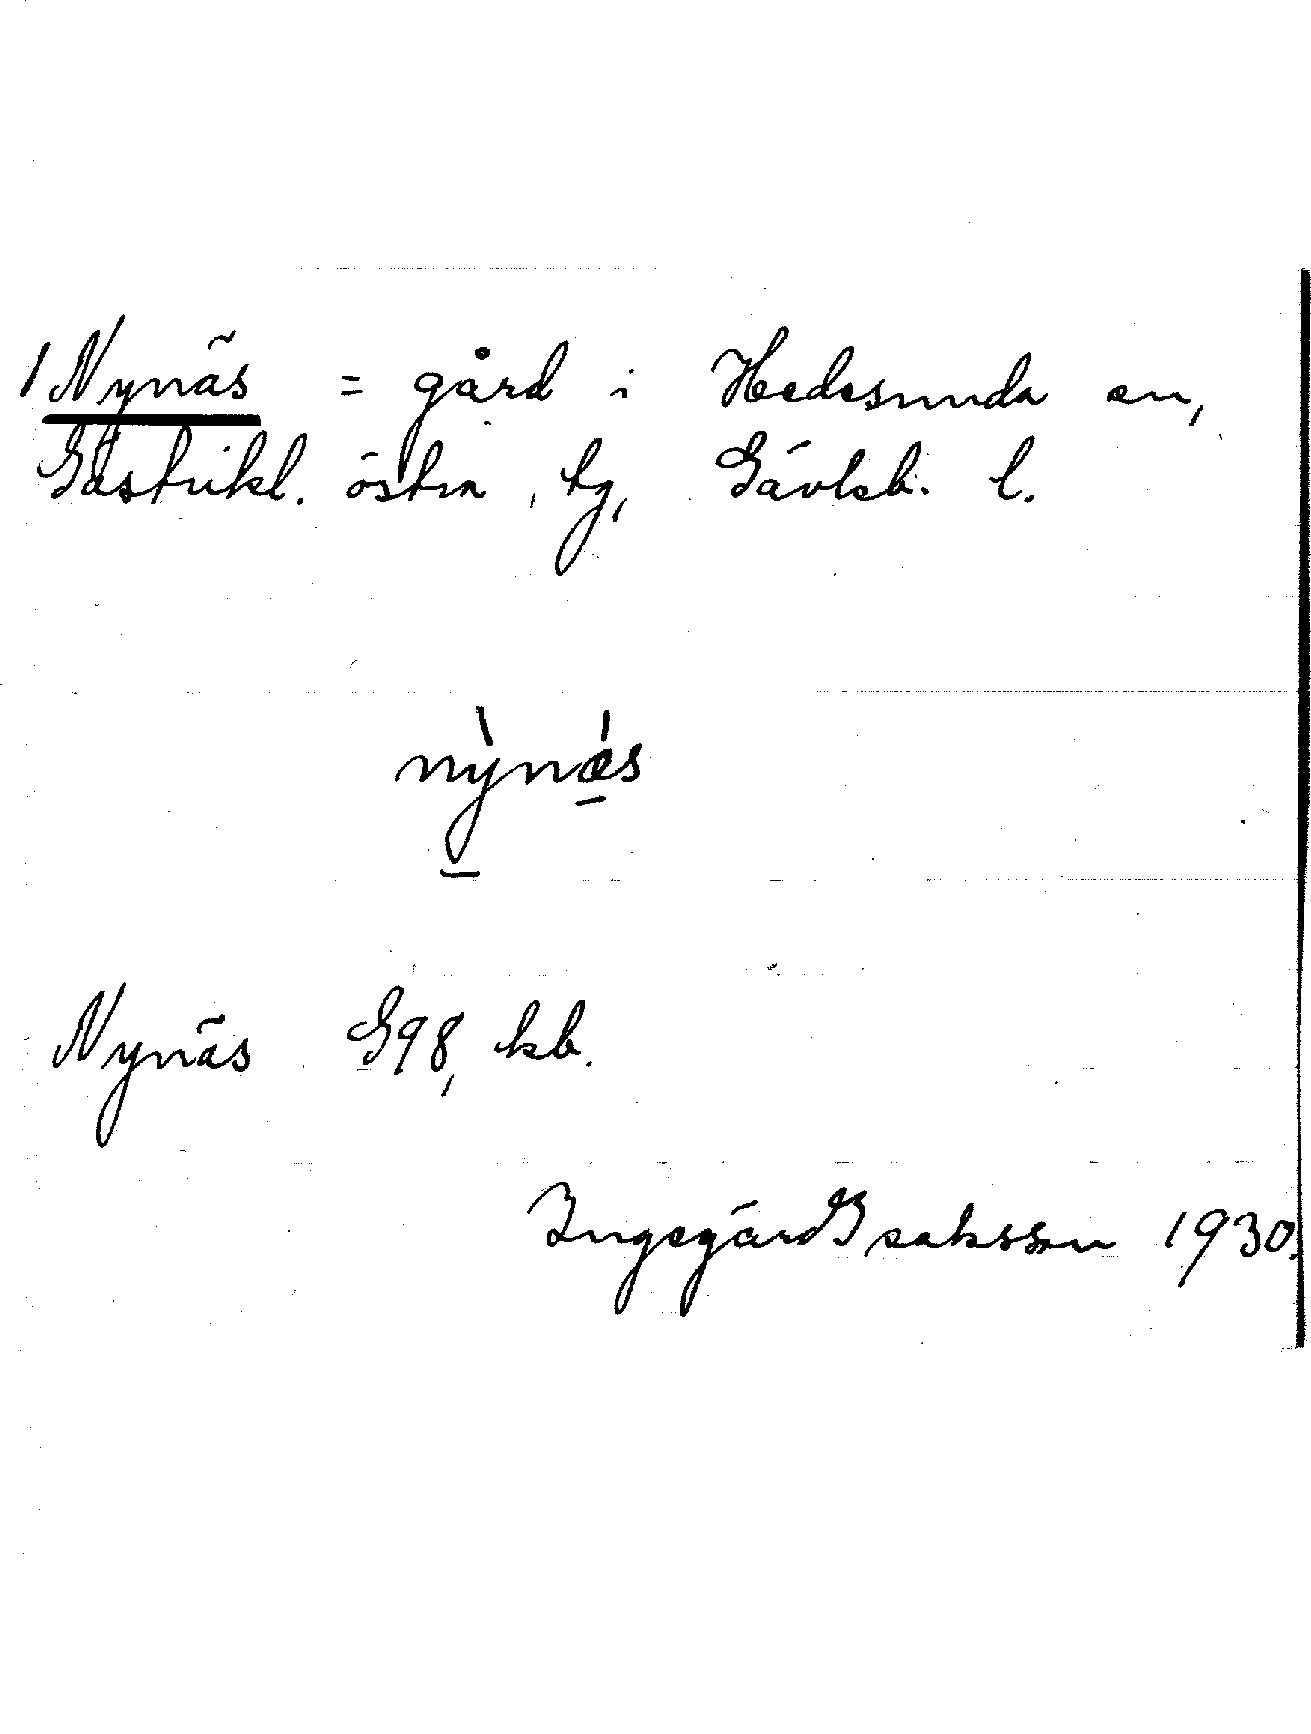 1 Nynäs = gård i Hedesunda sn,
Gästrikl. östra tg, Gävleb. l.
nỳnǽs
Nynäs G98, kb.
Ingegärd Isaksson 1930.